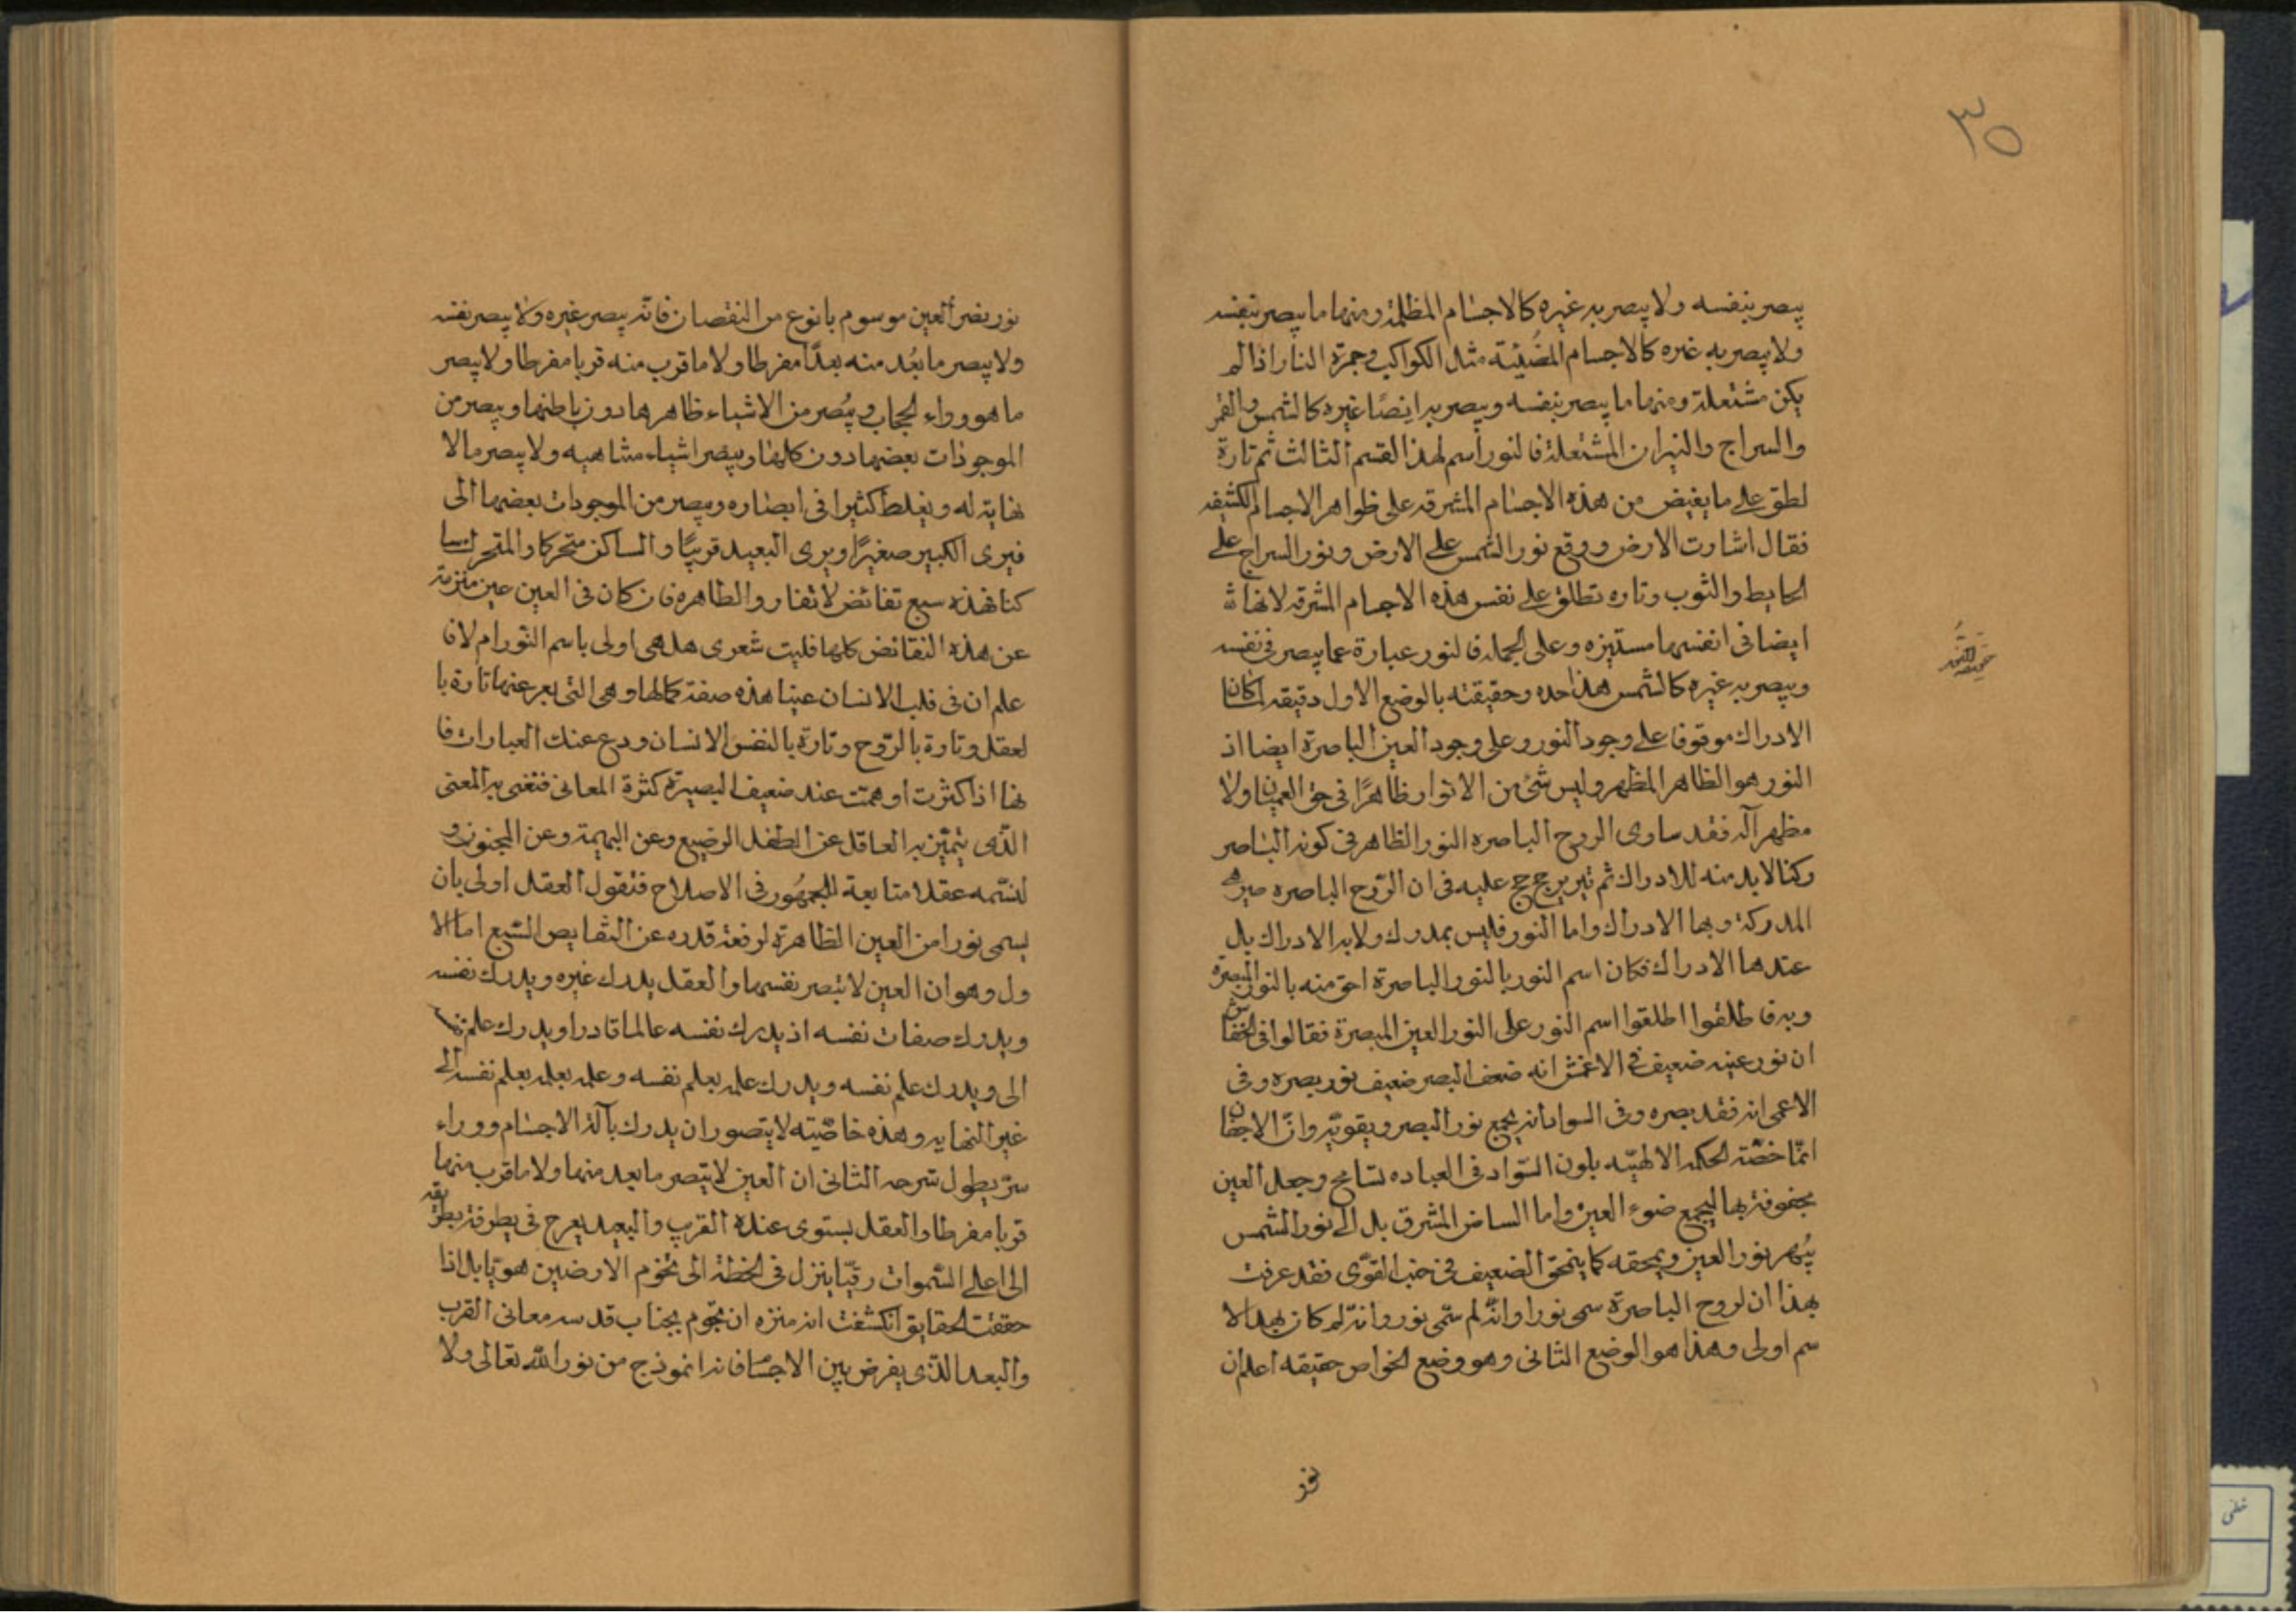 ٣٥
يبصر بنفسه ولا يبصر به غيره كالاجسام المظلمة ومنها ما يبصر بنفسه
ولا يبصر به غيره كالاجسام المضيئة مثل الكواكب وجمرة النار اذا لم
يكن مشتعلة ومنها ما يبصر بنفسه ويبصر به ايضًا غيره كالشمس والقمر
والسراج والنيران المشتعلة فالنور اسم لهذا القسم الثالث ثم تارة
لطق على ما يفيض من هذه الاجسام المشرقه على ظواهر الاجسام الكثيفه
فقال اشارت الارض ووقع نور الشمس على الارض ونور السراج على
الحايط والثوب وتاره تطلق على نفس هذه الاجسام المشرقه لانها
ايضا فى انفسها مستنيره وعلى الجمله فالنور عبارة عما يبصر فى نفسه
ويبصر به غيره كالشمس هذا حده وحقيقته بالوضع الاول دقيقه لما كان
الادراك موقوفا على وجود النور وعلى وجود العين الباصرة ايضا اذ
النور هو الظاهر المظهر وليس شئ من الانوار ظاهرًا فى حق العميان ولا
مظهر اله فقد ساوى الروح الباصره النور الظاهر فى كونه الباصر
ركنا لابد منه للادراك ثم تير يرجح عليه فى ان الروح الباصره
المدركة وبها الادراك واما النور فليس بمدرك ولا به الادراك بل
عندها الادراك فكان اسم النور بالنور الباصرة احق منه بالنور المبصرة
وبه فا طلقوا اطلقوا اسم النور على النور العين المبصرة فقالوا فى الخفاش
ان نور عينه ضعيف فى الاعمش انه ضعف البصر ضعيف نور بصره وفى
الاعمى انه فقد بصره وفى السواد انه يجمع نور البصر ويقويه وان الاجفان
انما خصّته الحكمه الالهيّه بلون السّواد فى العباده تسامح وجعل العين
محفوفة بها ليجمع ضوء العين واما البياض المشرق بل الى نور الشمس
يبهر نور العين ويمحقه كما ينمحق الضعيف فى جنب القوّى فقد عرفت
بهذا ان لروح الباصرة سمى نورا وانّه لم سّمى نور وانّه لم كان بهذا الا
سم اولى وهذا هو الوضع الثانى وهو وضع الخواص حقيقه اعلم ان
نور بصر العين موسوم بانوع من النقصان فانّه يبصر غيره ولا يبصر نفسه
ولا يبصر ما بعُد منه بعدًا مفرطا ولا ما قرب منه قربا مفرطا ولا يبصر
ما هو وراء الحجاب ويُبصر من الاشياء ظاهرها دون باطنها ويبصر من
الموجودات بعضها دون كلها ويبصر اشياء متناهيه ولا يبصر ما لا
نهاية له ويغلط كثيرا فى ابصاره ويبصر من الموجودات بعضها الى
فيرى الكبير صغيرًا ويرى البعيد قريبًا والساكن متحركا والمتحرك سا
كنا فهذه سبع نقائض لا تفارو الظاهره فان كان فى العين عين منزهة
عن هذه النقائض كلها فليت شعرى هل هى اولى باسم النور ام لا فا
علم ان فى قلب الانسان عينا هذه صفة كمالها وهى التى يعبر عنها تارة با
لعقل وتارة بالرّوح وتارة بالنفس الانسان ودع عنك العبارات فا
نها اذا كثرت اوهمت عند ضعيف البصيرة كثرة المعانى فنعنى به المعنى
الذّى يتميّز به العاقل عن الطفل الرضيع وعن البهيمة وعن المجنون و
لنسّمه عقلا متابعة للجمهُور فى الاصلاح فنقول العقل اولى بان
يسمى نورا من العين الظاهرة لرفعة قدره عن النقايص السّبع اما الا
ول وهو ان العين لا تبصر نفسها والعقل يدرك غيره ويدرك نفسه
ويدرك صفات نفسه اذ يدرك نفسه عالما قادرا ويدرك علم
الى ويدرك علم نفسه ويدرك علمه بعلم نفسه وعلمه بعلمه بعلم نفسه الى
غير النهايه وهذه خاصّيته لا يتصور ان يدرك بآلة الاجسام ووراء
سرّ يطول شرحه الثانى ان العين لا يتبصر ما بعد منها ولا ما قرب منها
قربا مفرطا والعقل يستوى عنده القرب والبعيد يعرج فى يطرفة
الى اعلى السّموات رقيّا ينزل فى الخظة الى تخوم الارضين هويّا بل اذا
حققت الحقايق انكشفت انه منزه ان تحوم بجناب قدسه معانى القرب
والبعد الذّى يفرض بين الاجسام فانه انموذج من نور الله تعالى ولا